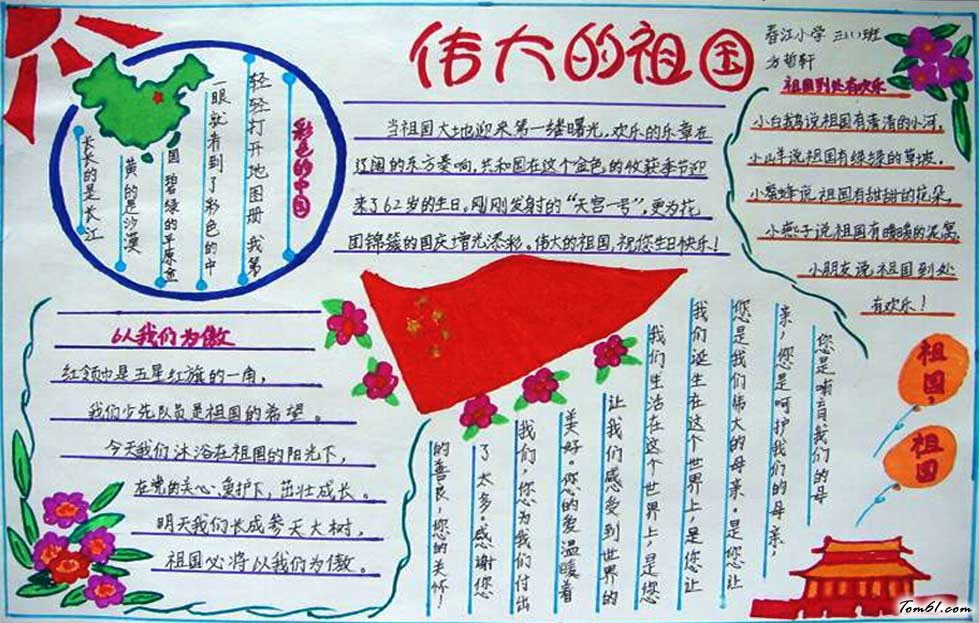 伟大的祖国
春江小学 三(1)班
方哲轩
当祖国大地迎来第一缕曙光,欢乐的乐章在
辽阔的东方奏响,共和国在这个金色的收获季节迎
来了62岁的生日。刚刚发射的“天宫一号”,更为花
团锦簇的国庆增光添彩。伟大的祖国,祝您生日快乐!
彩色的中国
轻轻打开地图册 我第
一眼就看到了彩色的中
国 碧绿的平原金
黄的是沙漠
长长的是长江
祖国到处有欢乐
小白鹅说祖国有清清的小河,
小山羊说祖国有绿绿的草坡。
小蜜蜂说祖国有甜甜的花朵。
小燕子说祖国有暖暖的泥窝
小朋友说祖国到处
有欢乐!
以我们为傲
红领巾是五星红旗的一角,
我们少先队员是祖国的希望。
今天我们沐浴在祖国的阳光下,
在党的关心、爱护下,茁壮成长。
明天我们长成参天大树,
祖国必将以我们为傲。
您是哺育我们的母
亲,您是呵护我们的母亲,
您是我们伟大的母亲。是您让
我们诞生在这个世界上,是您让
我们生活在这个世界上,是您
让我们感受到世界的
美好。您的爱温暖着
我们,您为我们付出
了太多。感谢您
的善良,您的关怀!
祖国,
祖国
Tom61.com